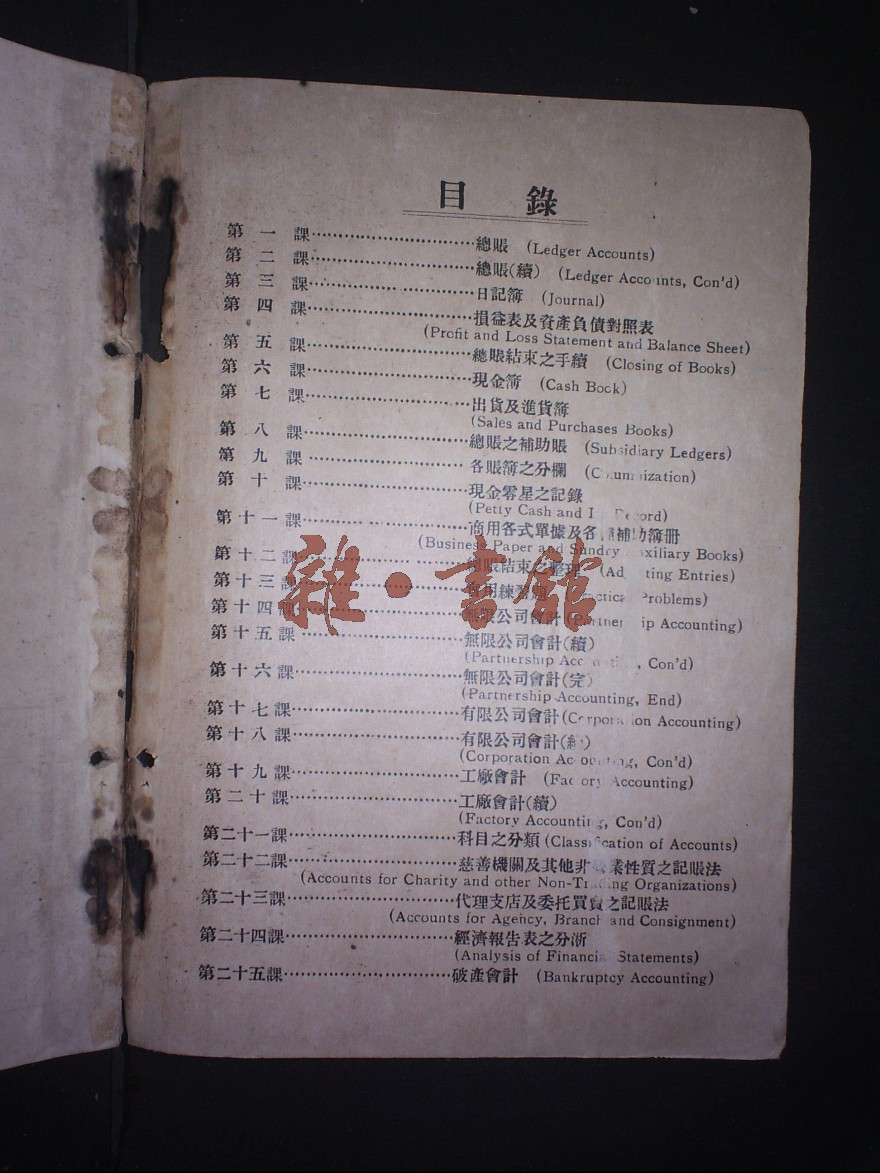 目 錄
第一課………總賬 (Ledger Accounts)
第二課………總賬(續) (Ledger Accounts, Con'd)
第三課………日記簿 (Journal)
第四課………損益表及資產負債對照表
(Profit and Loss Statement and Balance Sheet)
第五課………總賬結束之手續 (Closing of Books)
第六課………現金簿 (Cash Book)
第七課………出貨及進貨簿
(Sales and Purchases Books)
第八課………總賬之補助賬 (Subsidiary Ledgers)
第九課………各賬簿之分欄
第十課………現金零星之記錄
(Petty Cash and
第十一課………商用各式單據及各補助簿冊
(Business Paper and Sundry Auxiliary Books)
第十二課………總賬結束之整理 (Adjusting Entries)
第十三課………用練習題 (Practical Problems)
第十四課………無限公司會計 (Partnership Accounting)
第十五課………無限公司會計(續)
(Partnership Accounting, Con'd)
第十六課………無限公司會計(完)
(Partnership Accounting, End)
第十七課………有限公司會計 (Corporation Accounting)
第十八課………有限公司會計(續)
(Corporation Accounting, Con'd)
第十九課………工廠會計 (Factory Accounting)
第二十課………工廠會計(續)
(Factory Accounting, Con'd)
第二十一課………科目之分類 (Classification of Accounts)
第二十二課………慈善機關及其他非業性質之記賬法
(Accounts for Charity and other Non-Trading Organizations)
第二十三課………代理支店及委托買賣之記賬法
(Accounts for Agency, Branch and Consignment)
第二十四課………經濟報告表之分淅
(Analysis of Financial Statements)
第二十五課………破產會計 (Bankruptcy Accounting)
雜·書館